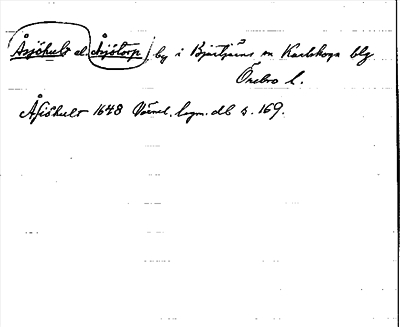 Åsjöhult el. Åsjötorp, by i Bjurtjärns sn Karlskoga blg
Örebro l.
Åsiöhult 1648 Värml. lagm. db s. 169.